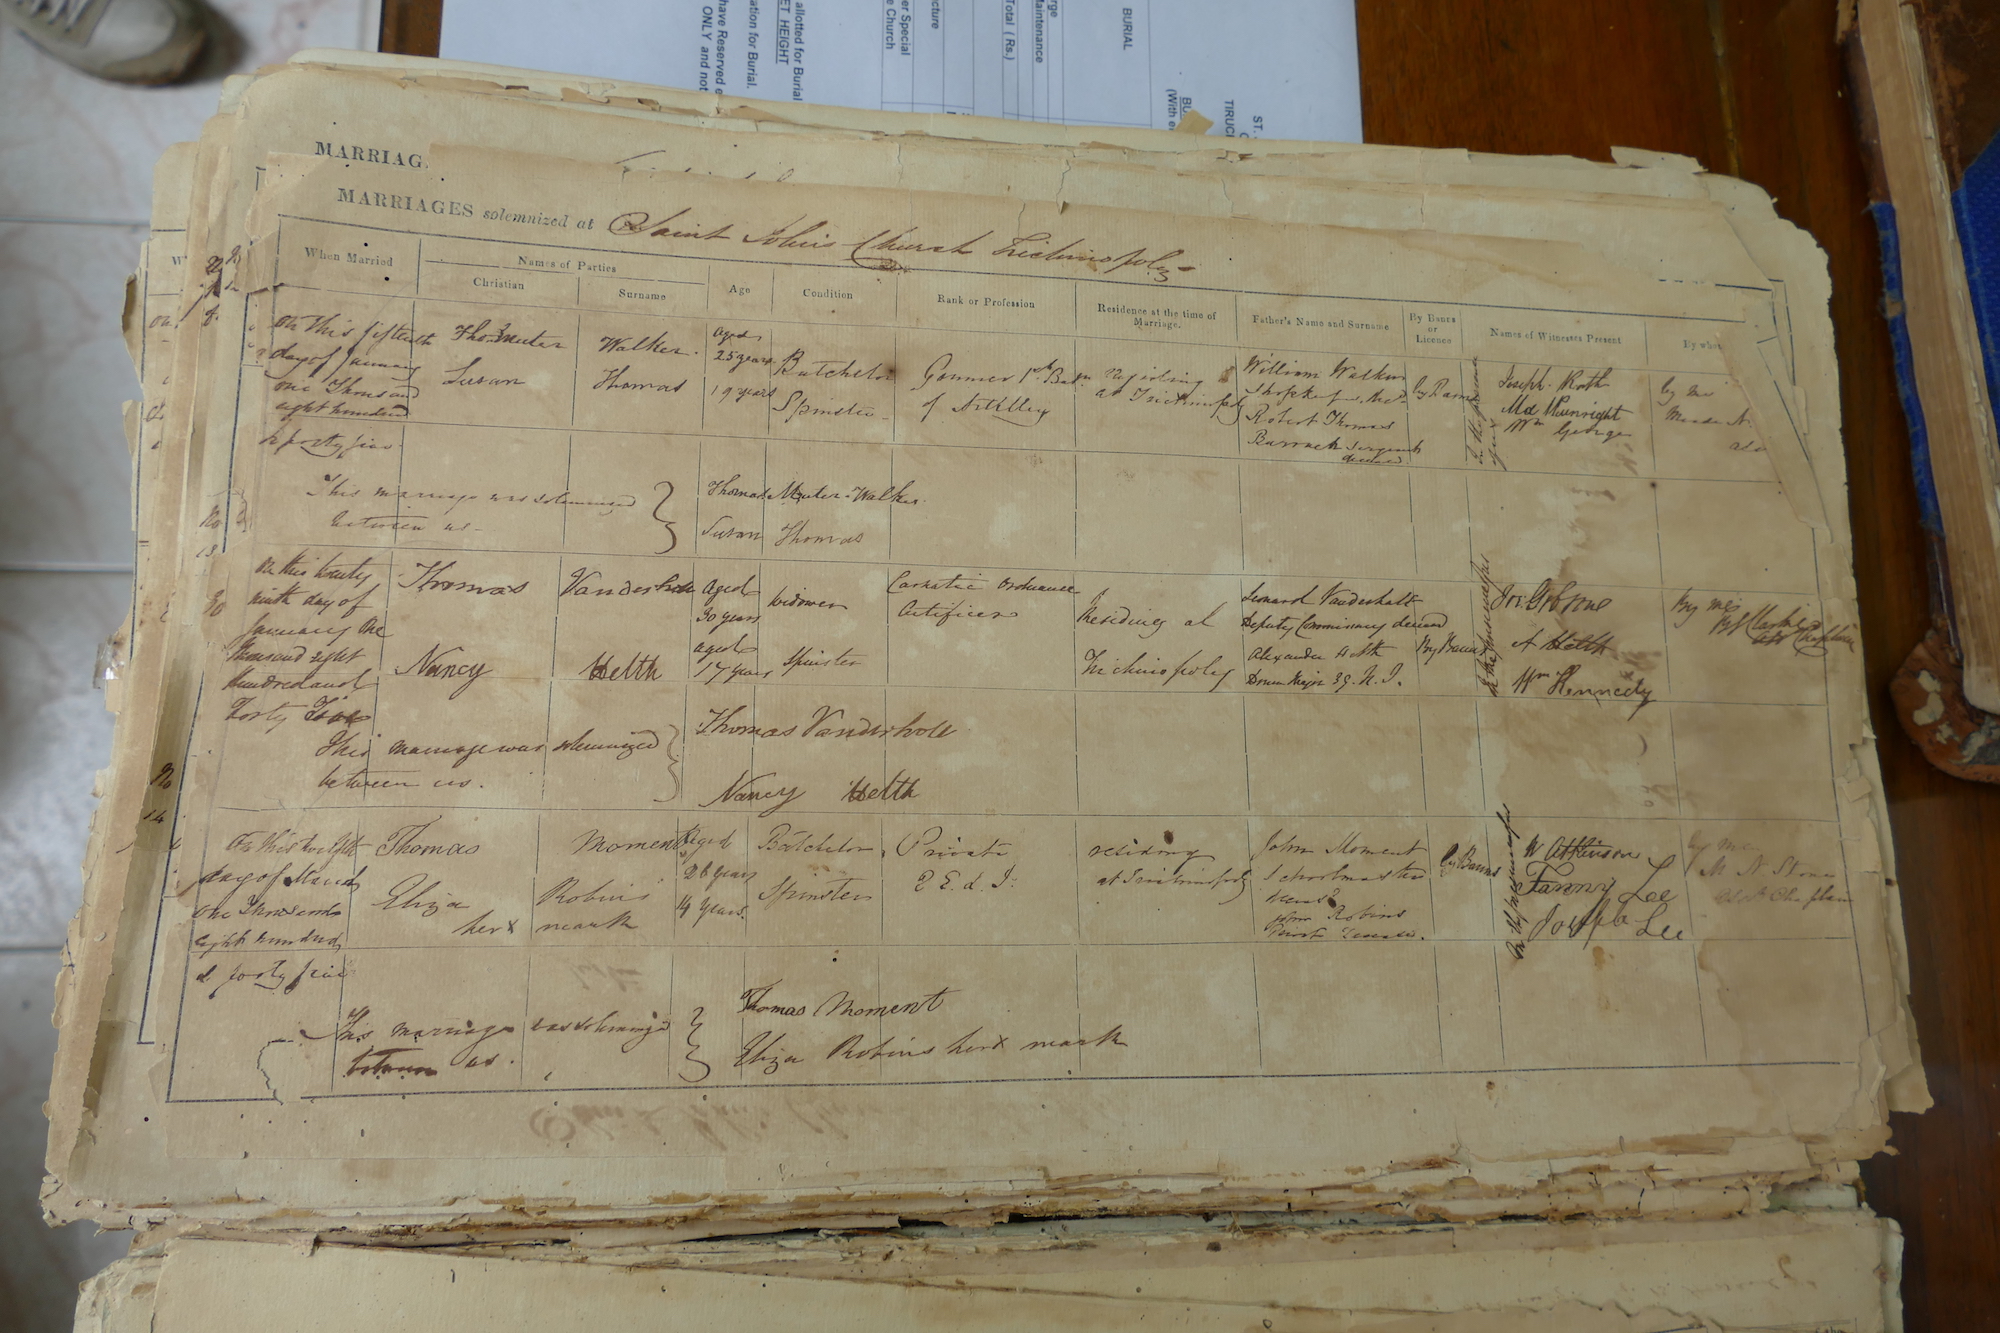 BURIAL
ST.
TIRUC
(With e
Total ( Rs.)
Maintenance
er Special
e Church
allotted for Burial
ET HEIGHT
ation for Burial.
have Reserved e
ONLY and not
MARRIAG
MARRIAGES solemnized at Saint John's Church Trichinopoly
When Married
Names of Parties
Christian
Surname
Age
Condition
Rank or Profession
Residence at the time of Marriage.
Father's Name and Surname
By Banns or Licence
Names of Witnesses Present
By whom
On this fifteenth
day of January
one Thousand
eight hundred
& forty five
Thomas Muter
Walker
aged
25 years
Batchelor
Susan
Thomas
19 years
Spinster
Gunner 1st Batn
of Artillery
residing
at Trichinopoly
William Walker
Robert Thomas
Barrack Sergeant
deceased
by Banns
in the presence
of us
Joseph Roth
Md Wainright
Wm George
by me
This marriage was solemnized
between us
Thomas Muter Walker
Susan Thomas
On this twenty
ninth day of
January One
thousand eight
hundred and
Forty Five
Thomas
Vanderholt
Aged
30 years
Widower
Carnatic Ordnance
Artificer
Nancy
Helth
aged
17 years
Spinster
Residing at
Trichinopoly
Leonard Vanderhalt
Deputy Commissary deceased
Alexander
Drum Major 39. N. I.
By Banns
in the presence of us
A Helth
Wm Kennedy
By me
This marriage was solemnized
between us.
Thomas Vanderholt
Nancy Helth
No
14
On this twelfth
day of March
one Thousand
eight hundred
& forty five
Thomas
Moment
Aged
26 years
Batchelor
Eliza
her x
Robins
mark
14 years.
Spinster
Private
2 E. L. I.
residing
at Trichinopoly
John Moment
Schoolmaster
John Robins
by Banns
in the presence of us
W Atkinson
Fanny Lee
Joseph Lee
by me
Chaplain
This marriage was solemnized
between us.
Thomas Moment
Eliza Robins her x mark